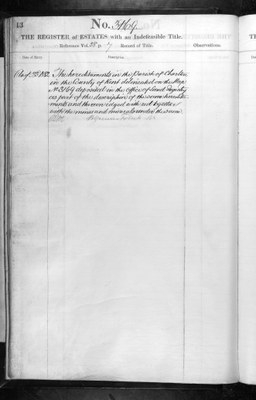 13
No. 3469
THE REGISTER of ESTATES with an Indefeasible Title.
Reference Vol. Record of Title. Observations.
Date of Entry. Description.
The hereditaments in the Parish of
in the County of Kent delineated on the Map
No 3469 deposited in the Office of Land Registry
as part of the description of the same heredita-
ments and thereon edged with red together
with the mines and minerals under the same
TH